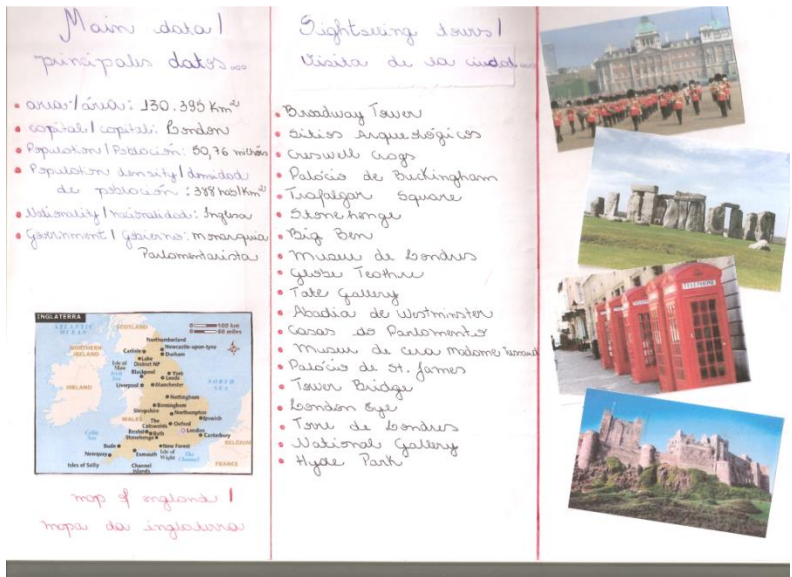 Main data/
principales datos...
• area/área: 130.395 Km²
• capital/capital: London
• Population/Población: 50,76 milhões
• Population density/densidad
de población: 388 hab/Km²
• Nationality/nacionalidad: Inglesa
• Government/Gobierno: monarquia
Parlamentarista
INGLATERRA
ATLANTIC
OCEAN
SCOTLAND
0 100 km
0 60 miles
Northumberland
Newcastle-upon-tyne
Carlisle
Durham
NORTHERN
IRELAND
Lake
District NP
Isle of
Man
Blackpool
York
Leeds
Irish
Sea
IRELAND
Liverpool
Manchester
NORTH
SEA
Nottingham
Birmingham
Shropshire
Northampton
WALES
The
Cotswolds
Oxford
Ipswich
London
Bristol
Bath
Stonehenge
Canterbury
Celtic
Sea
BELGIUM
Bude
New Forest
Newquay
Exmouth
Isle of
Wight
The
Channel
Isles of Scilly
Channel
Islands
FRANCE
map of england/
mapa da inglaterra
Sightseeing tours/
Visita de la ciudad...
• Broadway Tower
• Sitios Arqueológicos
• Creswell Crags
• Palácio de Buckingham
• Trafalgar Square
• Stonehenge
• Big Ben
• Museu de Londres
• Globe Teathre
• Tate Gallery
• Abadia de Westminster
• Casas do Parlamento
• Museu de cera Madame Tussaud
• Palácio de St. James
• Tower Bridge
• London Eye
• Torre de Londres
• National Gallery
• Hyde Park
TELEPHONE